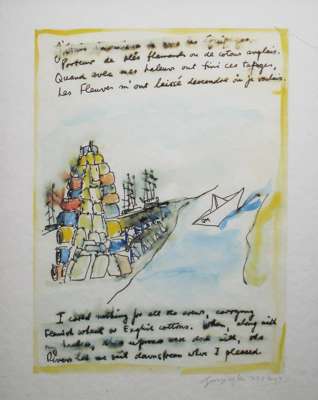 Porteur de blés flamands ou de cotons anglais.
Quand avec mes haleurs ont fini ces tapages,
Les Fleuves m'ont laissé descendre où je voulais.
I cared nothing for all the crews, carrying
Flemish wheat or English cottons. When, along with
my haulers, this uproar was done with, the
Rivers let me sail downstream where I pleased.